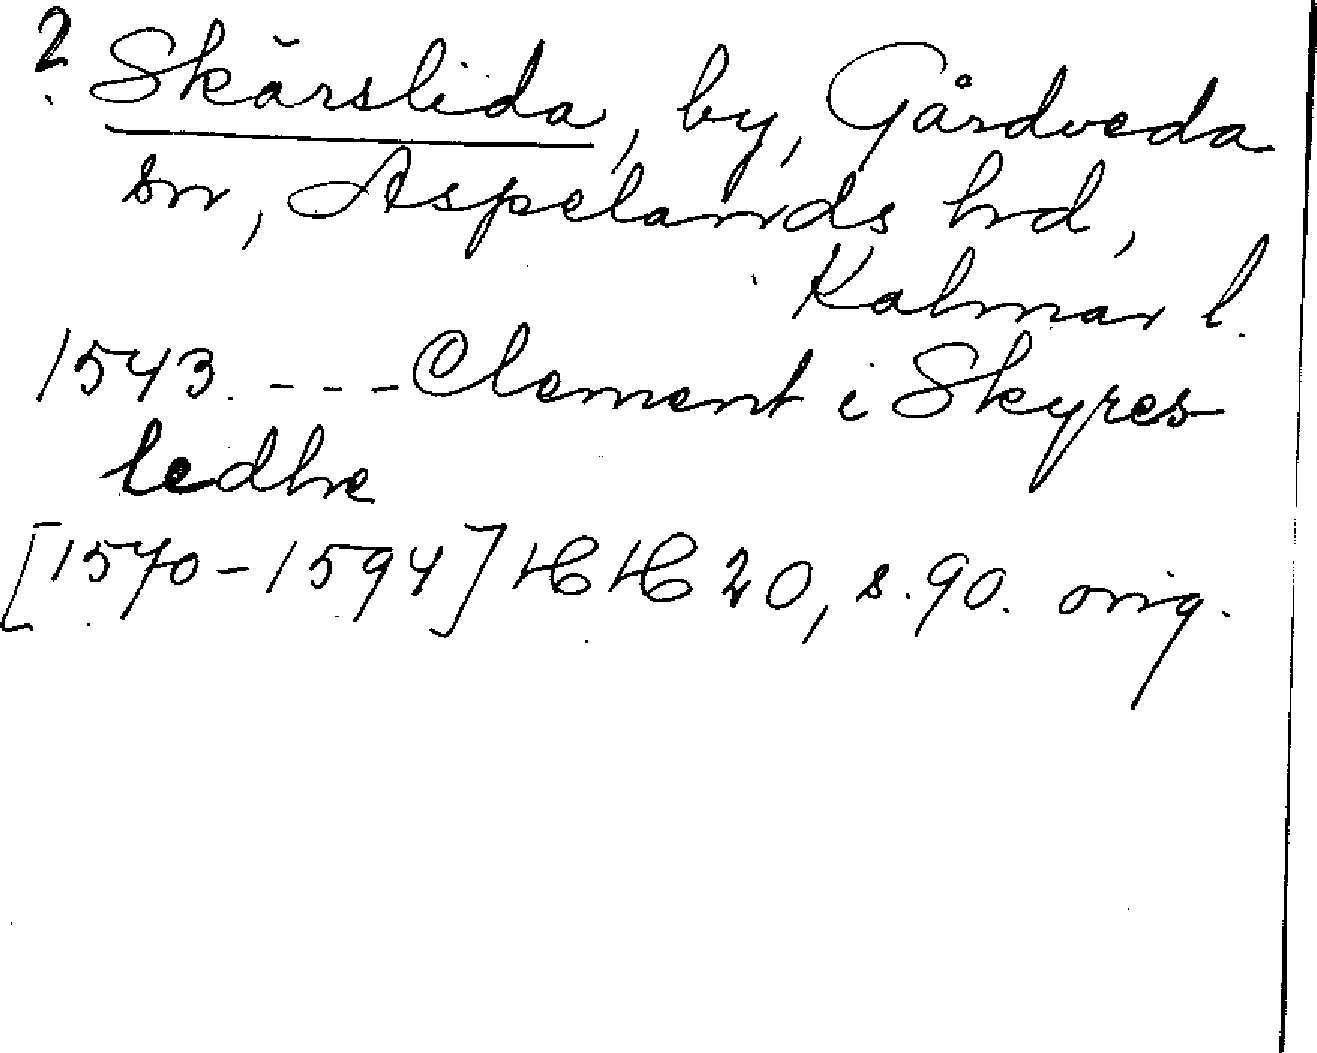 ? Skärslida, by, Gårdveda
sn, Aspelands hd,
Kalmar l.
1543. - - - Clement i Skyres-
ledhe
[1570-1594] HH 20, s. 90. orig.